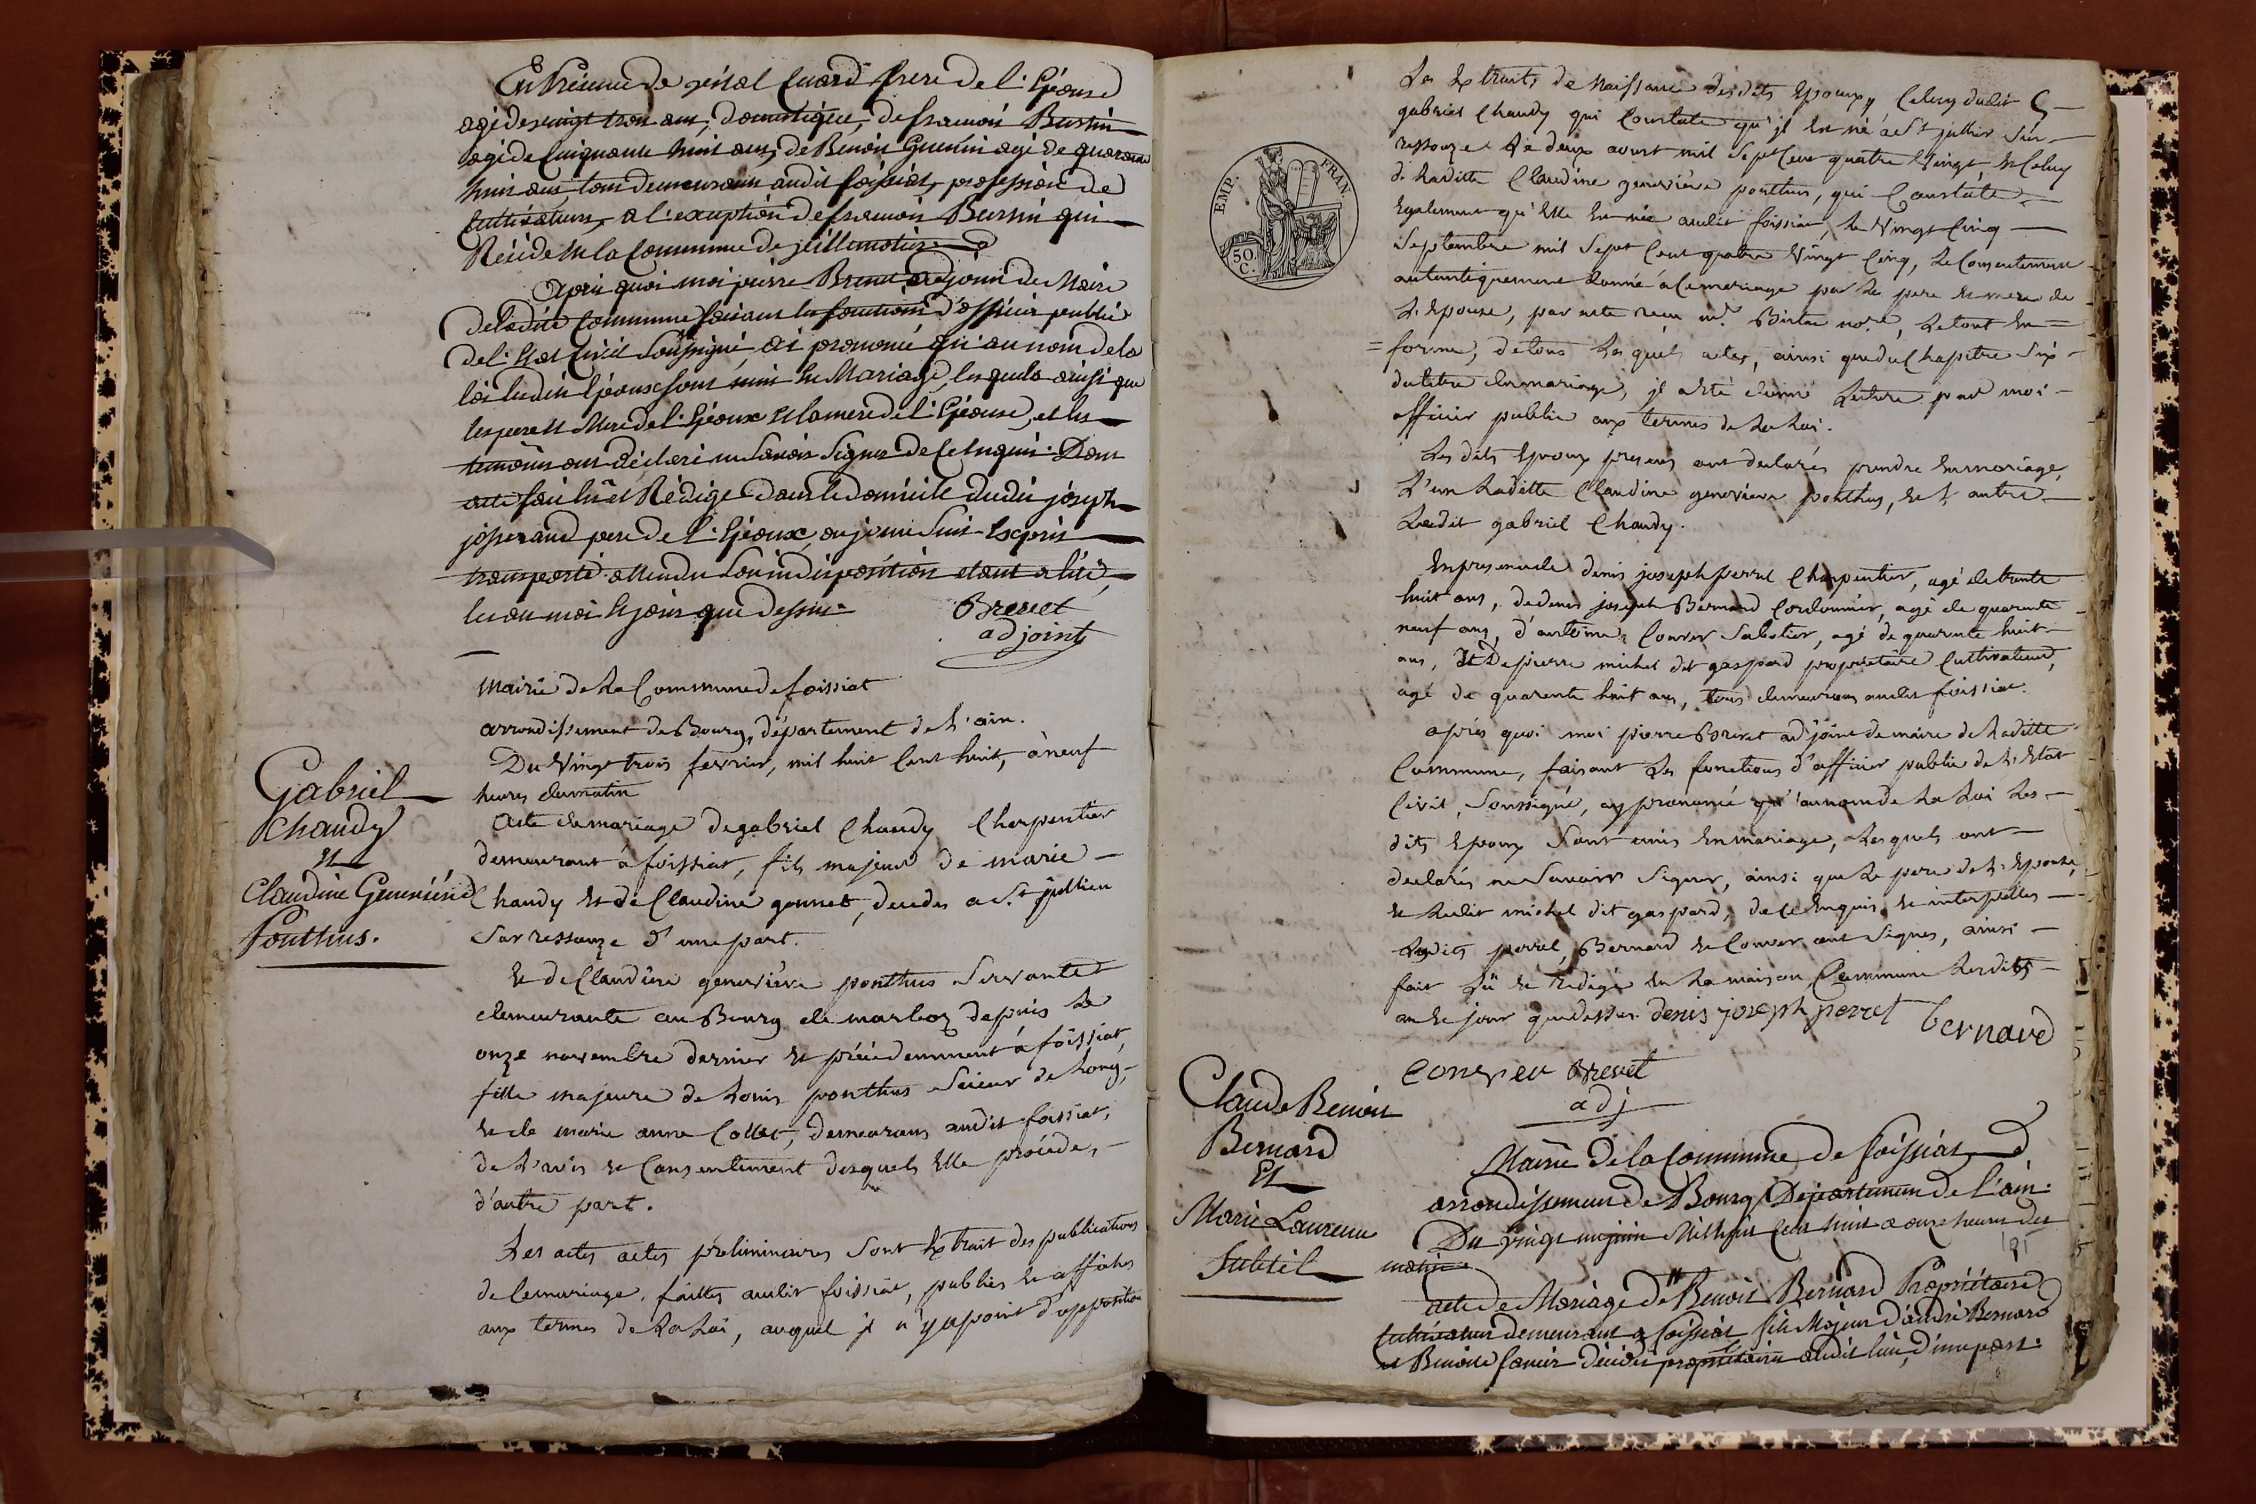 En Présence de vital Cuard frere de l'Epouse
agé de vingt trois ans, domestique, de francois Burtin
agé de Cinquante huit ans, de Benoit Guenin agé de quarante
huit ans, tous demeurants audit foissiat, profession de
Cultivateurs, a l'exception de francois Burtin qui
Réside en la Commune de jeillemotier
Après quoi moi pierre Brevet adjoint de Maire
de ladite Commune faisant les fonctions d'officier public
de l'Etat Civil Soussigné, ai prononcé qu'au nom de la
loi lesdits Epoux sont unis en Mariage, lesquels ainsi que
les pere et Mere de l'Epoux et la mere de l'Epouse, et les
temoins ont déclaré ne Savoir Signer de Ce Enquis. Dont
acte fait lû et Rédigé dans le domicile dudit joseph
josserand pere de l'Epoux, ou je me Suis Exprès
transporté attendu Son indisposition etant alité,
les an mois et jour que dessus.
Brevet
adjoint
Mairie de la Commune de foissiat
arrondissement de Bourg, département de l'ain.
Du Vingt trois fevrier, mil huit Cent huit, à neuf
heures du matin
Gabriel
Chaudy
et
Claudine Genevieve
Ponthus.
Acte de mariage de gabriel Chaudy Charpentier
demeurant à foissiat, fils majeur de marie
Chaudy et de Claudine gonnet, decedés a St jullien
Sur ressouze d'une part.
et de Claudine genevieve ponthus Servante
demeurante au Bourg de marboz depuis le
onze novembre dernier et précédemment à foissiat,
fille majeure de Louis ponthus Scieur de Long,
et de marie anne Collet, demeurans audit foissiat,
de L'avis et Consentement desquels Elle procéde,
d'autre part.
Les actes actes préliminaires Sont Extrait des publications
de Ce mariage, faittes audit foissiat, publiés et affichés
aux termes de La Loi, auquel il n'y a point d'opposition
EMP. FRAN.
50
C.
Les Extraits de Naissance desdits Epoux, Celuy dudit
gabriel Chaudy qui Constate qu'il est né à St jullien Sur
ressouze Le deux aoust mil Sept Cent quatre Vingt, et Celuy
de Laditte Claudine genevieve ponthus, qui Constate
Egalement qu'Elle Est née audit foissiat, le Vingt Cinq
Septembre mil Sept Cent quatre Vingt Cinq, Le Consentement
autentiquement donné à Ce mariage par Le pere et mere de
L'Epouse, par acte reçu me. Bintre nore, Le tout En
forme, de tous Lesquels actes, ainsi que du Chapitre Six
du titre du mariage, il a Eté donné Lecture par moi
officier public aux termes de La Loi.
Les dits Epoux presens ont declarés prendre En mariage,
L'un Laditte Claudine genevieve ponthus, et L'autre
Ledit gabriel Chaudy.
En presence de denis joseph perret Charpentier, agé de trente
huit ans, de denis joseph Bernard Cordonnier, agé de quarante
neuf ans, d'antoine Convert Sabotier, agé de quarante huit
ans, Et De pierre michel dit gaspard propriétaire Cultivateur,
agé de quarante huit ans, tous demeurans audit foissiat.
après quoi moi pierre Brevet adjoint de maire de Laditte
Commune, faisant Les fonctions d'officier public de L'Etat
Civil, Soussigné, ay prononcé qu'au nom de La Loi Les
dits Epoux Sont unis En mariage, Lesquels ont
declarés ne Savoir Signer, ainsi que Le pere de L'Epouse,
et Ledit michel dit gaspard, de Ce Enquis et interpellés
Lesdits perret, Bernard et Conver ont Signés, ainsi
fait Lû et rédigé En La maison Commune Lesdits
an et jour que dessus. denis joseph perret bernard
Brevet
adj
Claude Benoit
Bernard
Et
Marie Laurence
Subtil
Mairie de la Commune de foissiat
arrondissement de Bourg Departement de l'ain.
Du vingt un juin Mil huit Cent huit a onze heures du
matin
acte de Mariage de Benoit Bernard Propriétaire
Cultivateur demeurant a foissiat fils Majeur d'andré Bernard
et Benoite décédés propriétaires audit lieu, d'une part.